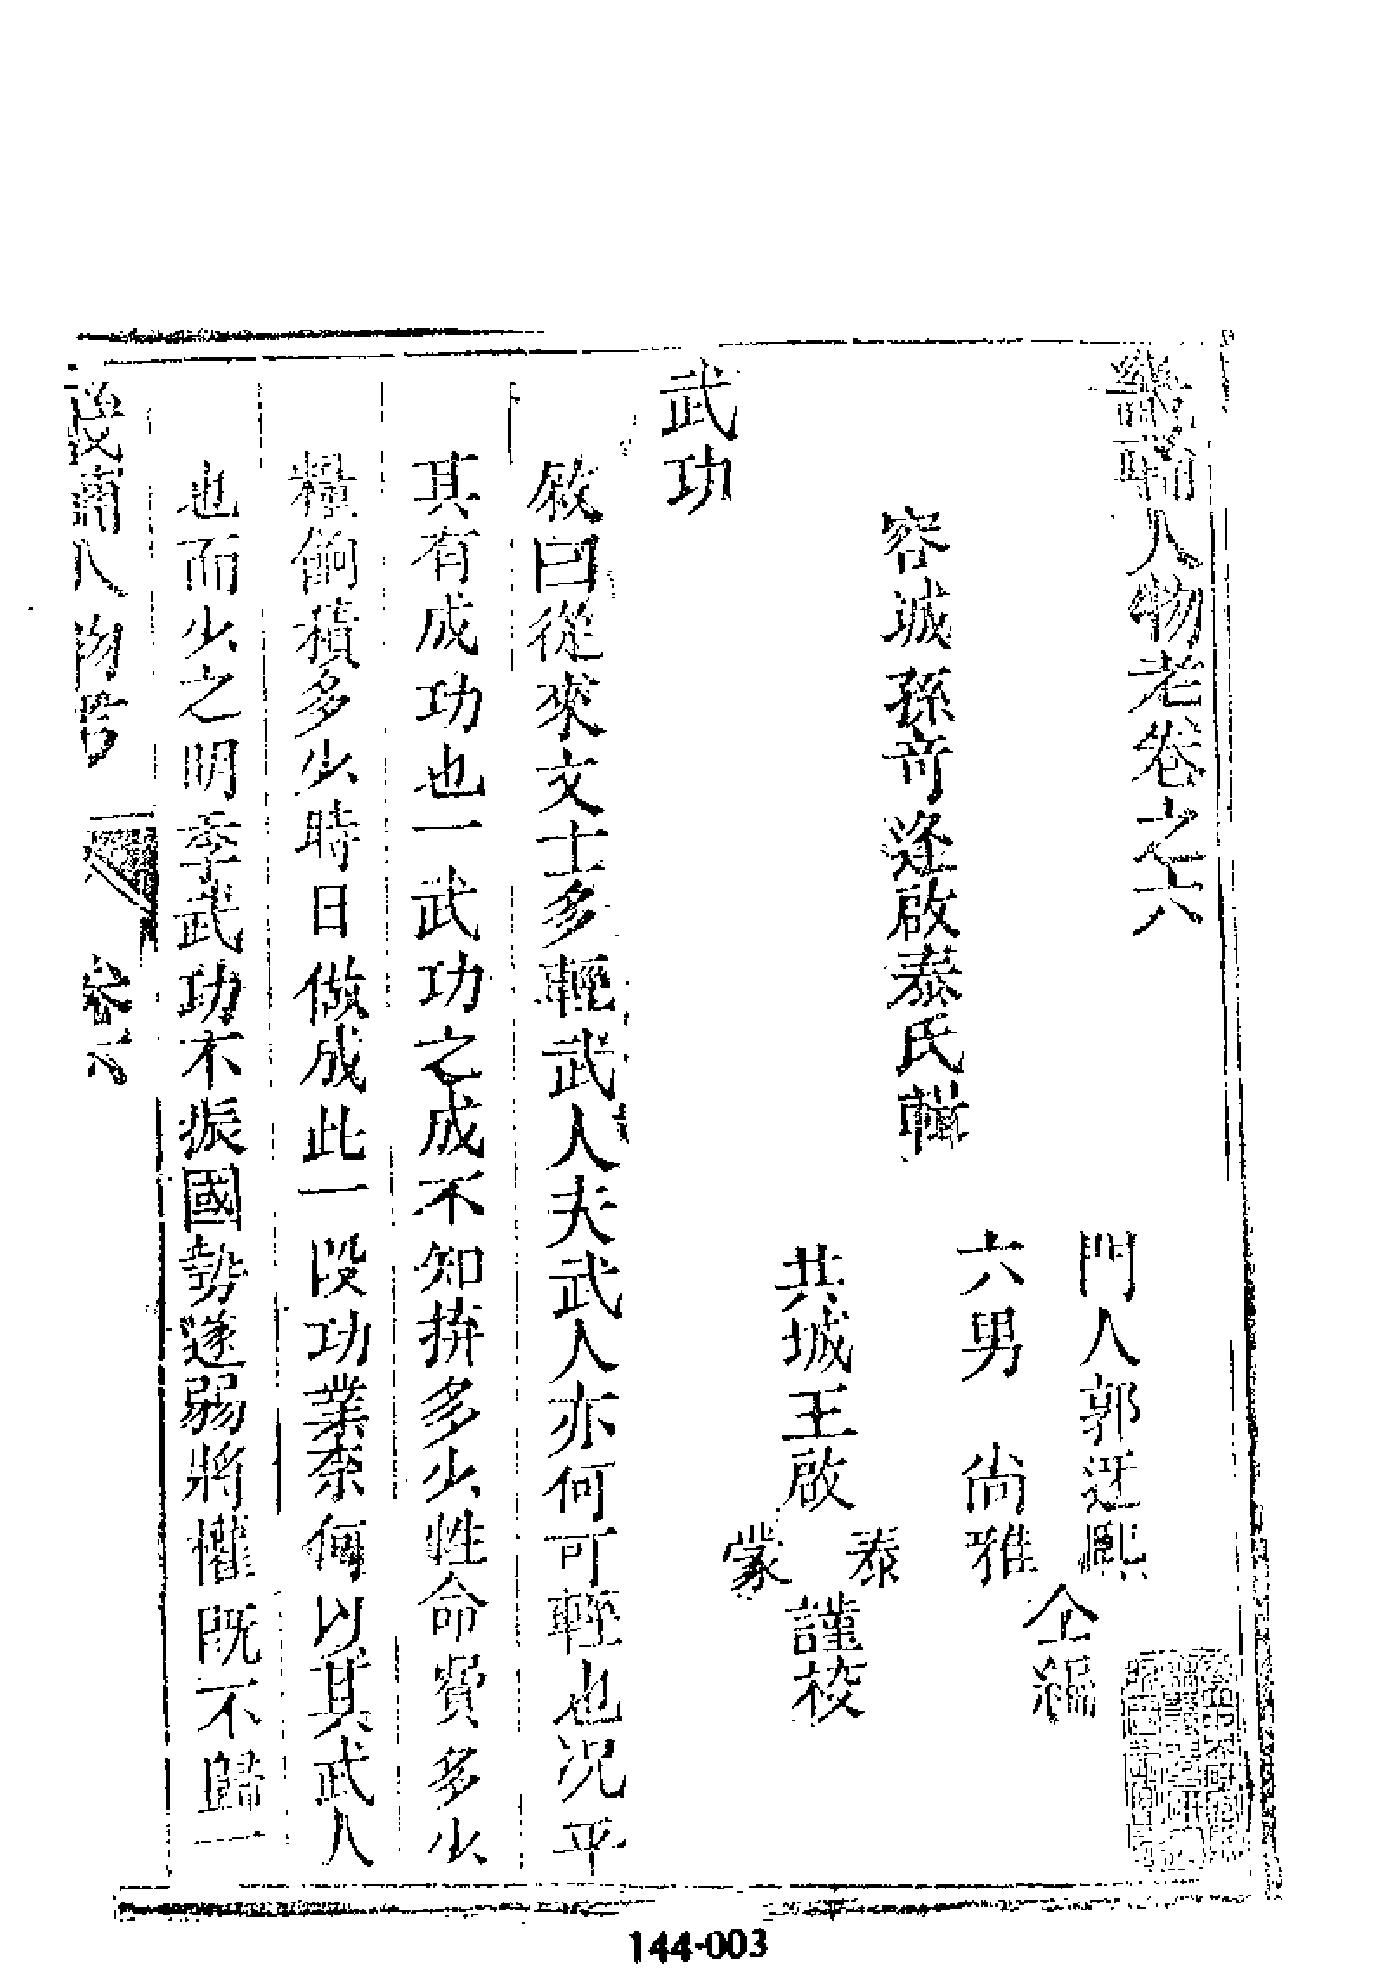 畿輔人物考卷之六
門人郭迓熙
仝編
六男　尚雅
容城孫奇逢啟泰氏輯
泰
共城王啟
謹校
蒙
武功
敘曰從來文士多輕武人夫武人亦何可輕也况乎
其有成功也一武功之成不知拚多少性命費多少
糧餉積多少時日做成此一段功業柰何以其武人
也而少之明季武功不振國勢遂弱將權既不歸一
畿輔人物考
卷六
144-003